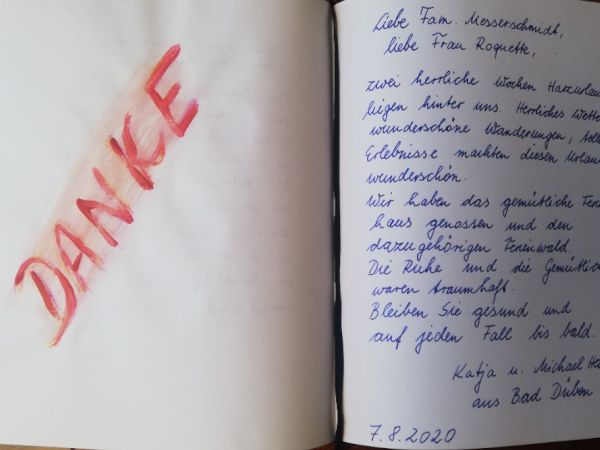 DANKE
Liebe Fam. Messerschmidt,
liebe Frau Roquette,
zwei herrliche Wochen Harzurlau
liegen hinter uns. Herrliches Wette
wunderschöne Wanderungen, toll
Erlebnisse machten diesen Urlau
wunderschön.
Wir haben das gemütliche Feri
haus genossen und den
dazugehörigen Ferienwald.
Die Ruhe und die Gemütlich
waren traumhaft.
Bleiben Sie gesund und
auf jeden Fall bis bald.
Katja u. Michael He
aus Bad Düben
7.8.2020